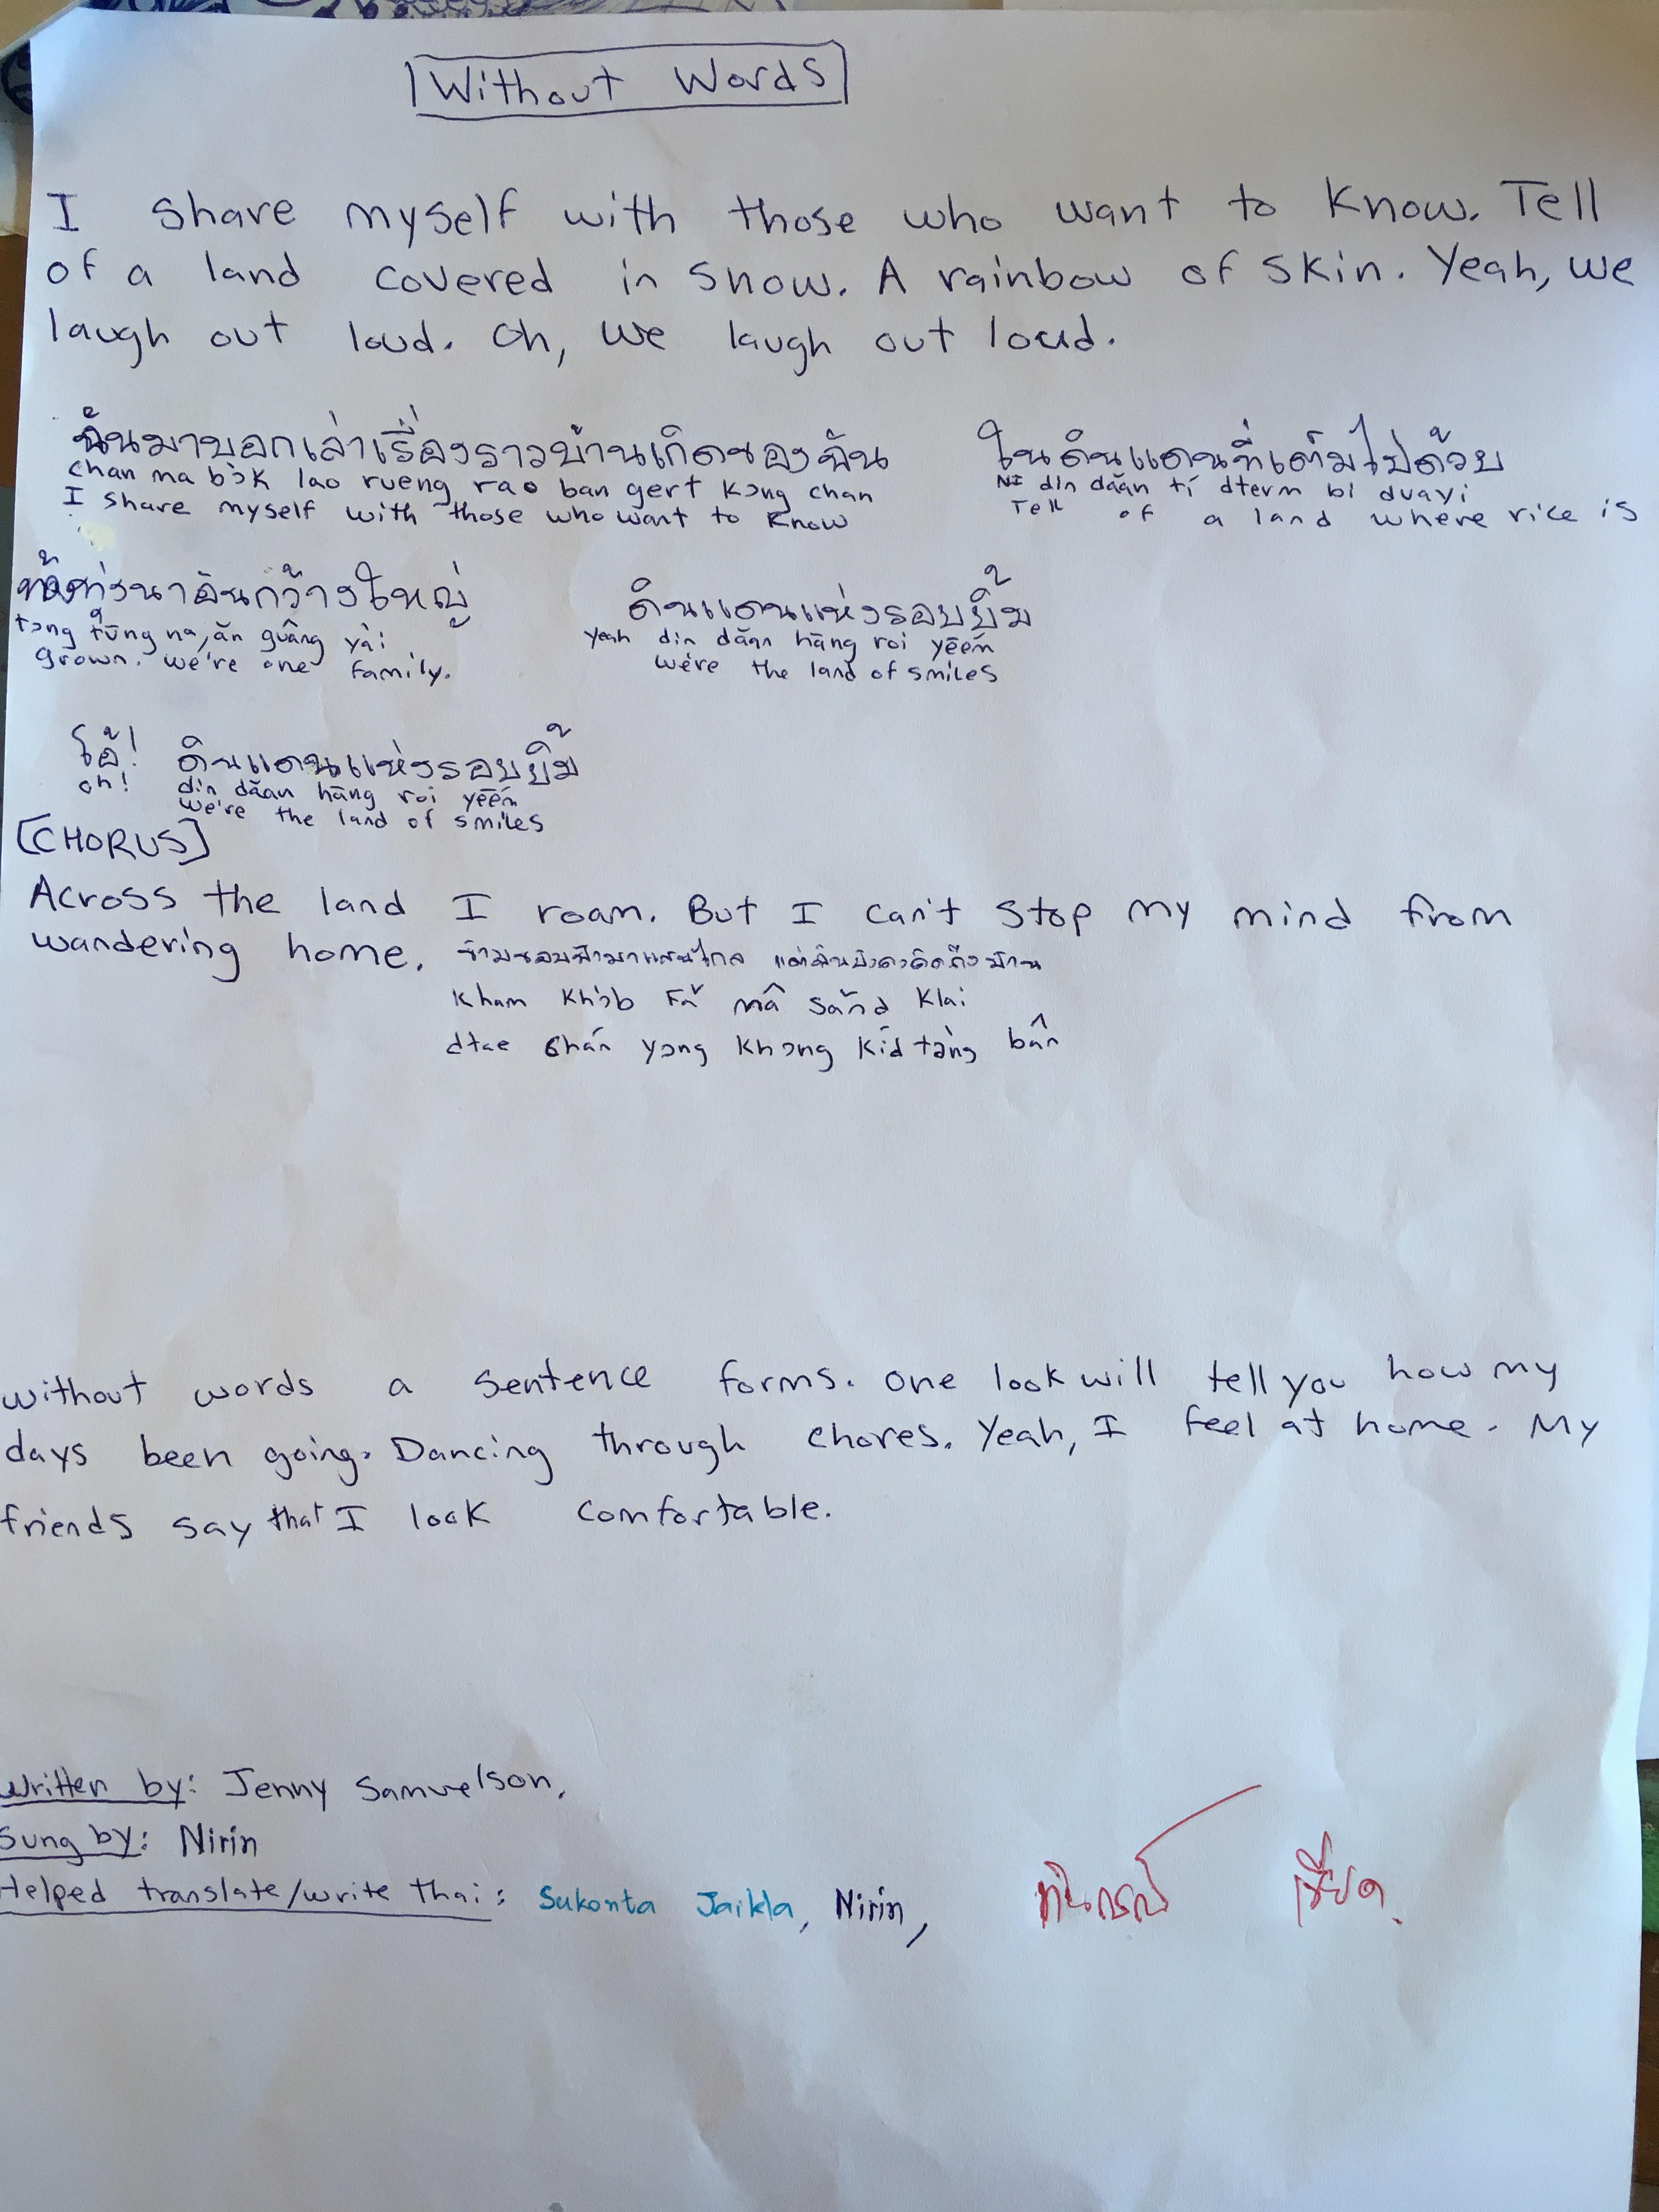 Without Words
I share myself with those who want to know. Tell
of a land covered in snow. A rainbow of skin. Yeah, we
laugh out loud. Oh, we laugh out loud.
ฉันมาบอกเล่าเรื่องราวบ้านเกิดของฉัน ในดินแดนที่เต็มไปด้วย
chan ma bɔ̀k lao rueng rao ban gert kɔng chan NI din dăan tí dterm bi duayi
I share myself with those who want to know Tell of a land where rice is
ท้องทุ่งนาอันกว้างใหญ่ ดินแดนแห่งรอยยิ้ม
tɔng tūng na, ăn guâng yài yeah din dăan hāng roi yēēm
grown. we're one family. we're the land of smiles
โอ้! ดินแดนแห่งรอยยิ้ม
oh! din dăan hāng roi yēēm
we're the land of smiles
[CHORUS]
Across the land I roam. But I can't stop my mind from
wandering home. ข้ามขอบฟ้ามาแสนไกล แต่ฉันยังคงคิดถึงบ้าน
kham khɔ̀b Fă mâ sănd klai
dtae chán yɔng khɔng kíd tàng bân
without words a sentence forms. one look will tell you how my
days been going. Dancing through chores. Yeah, I feel at home. My
friends say that I look comfortable.
Written by: Jenny Samuelson,
Sung by: Nirin
Helped translate/write thai: Sukonta Jaikla, Nirin,